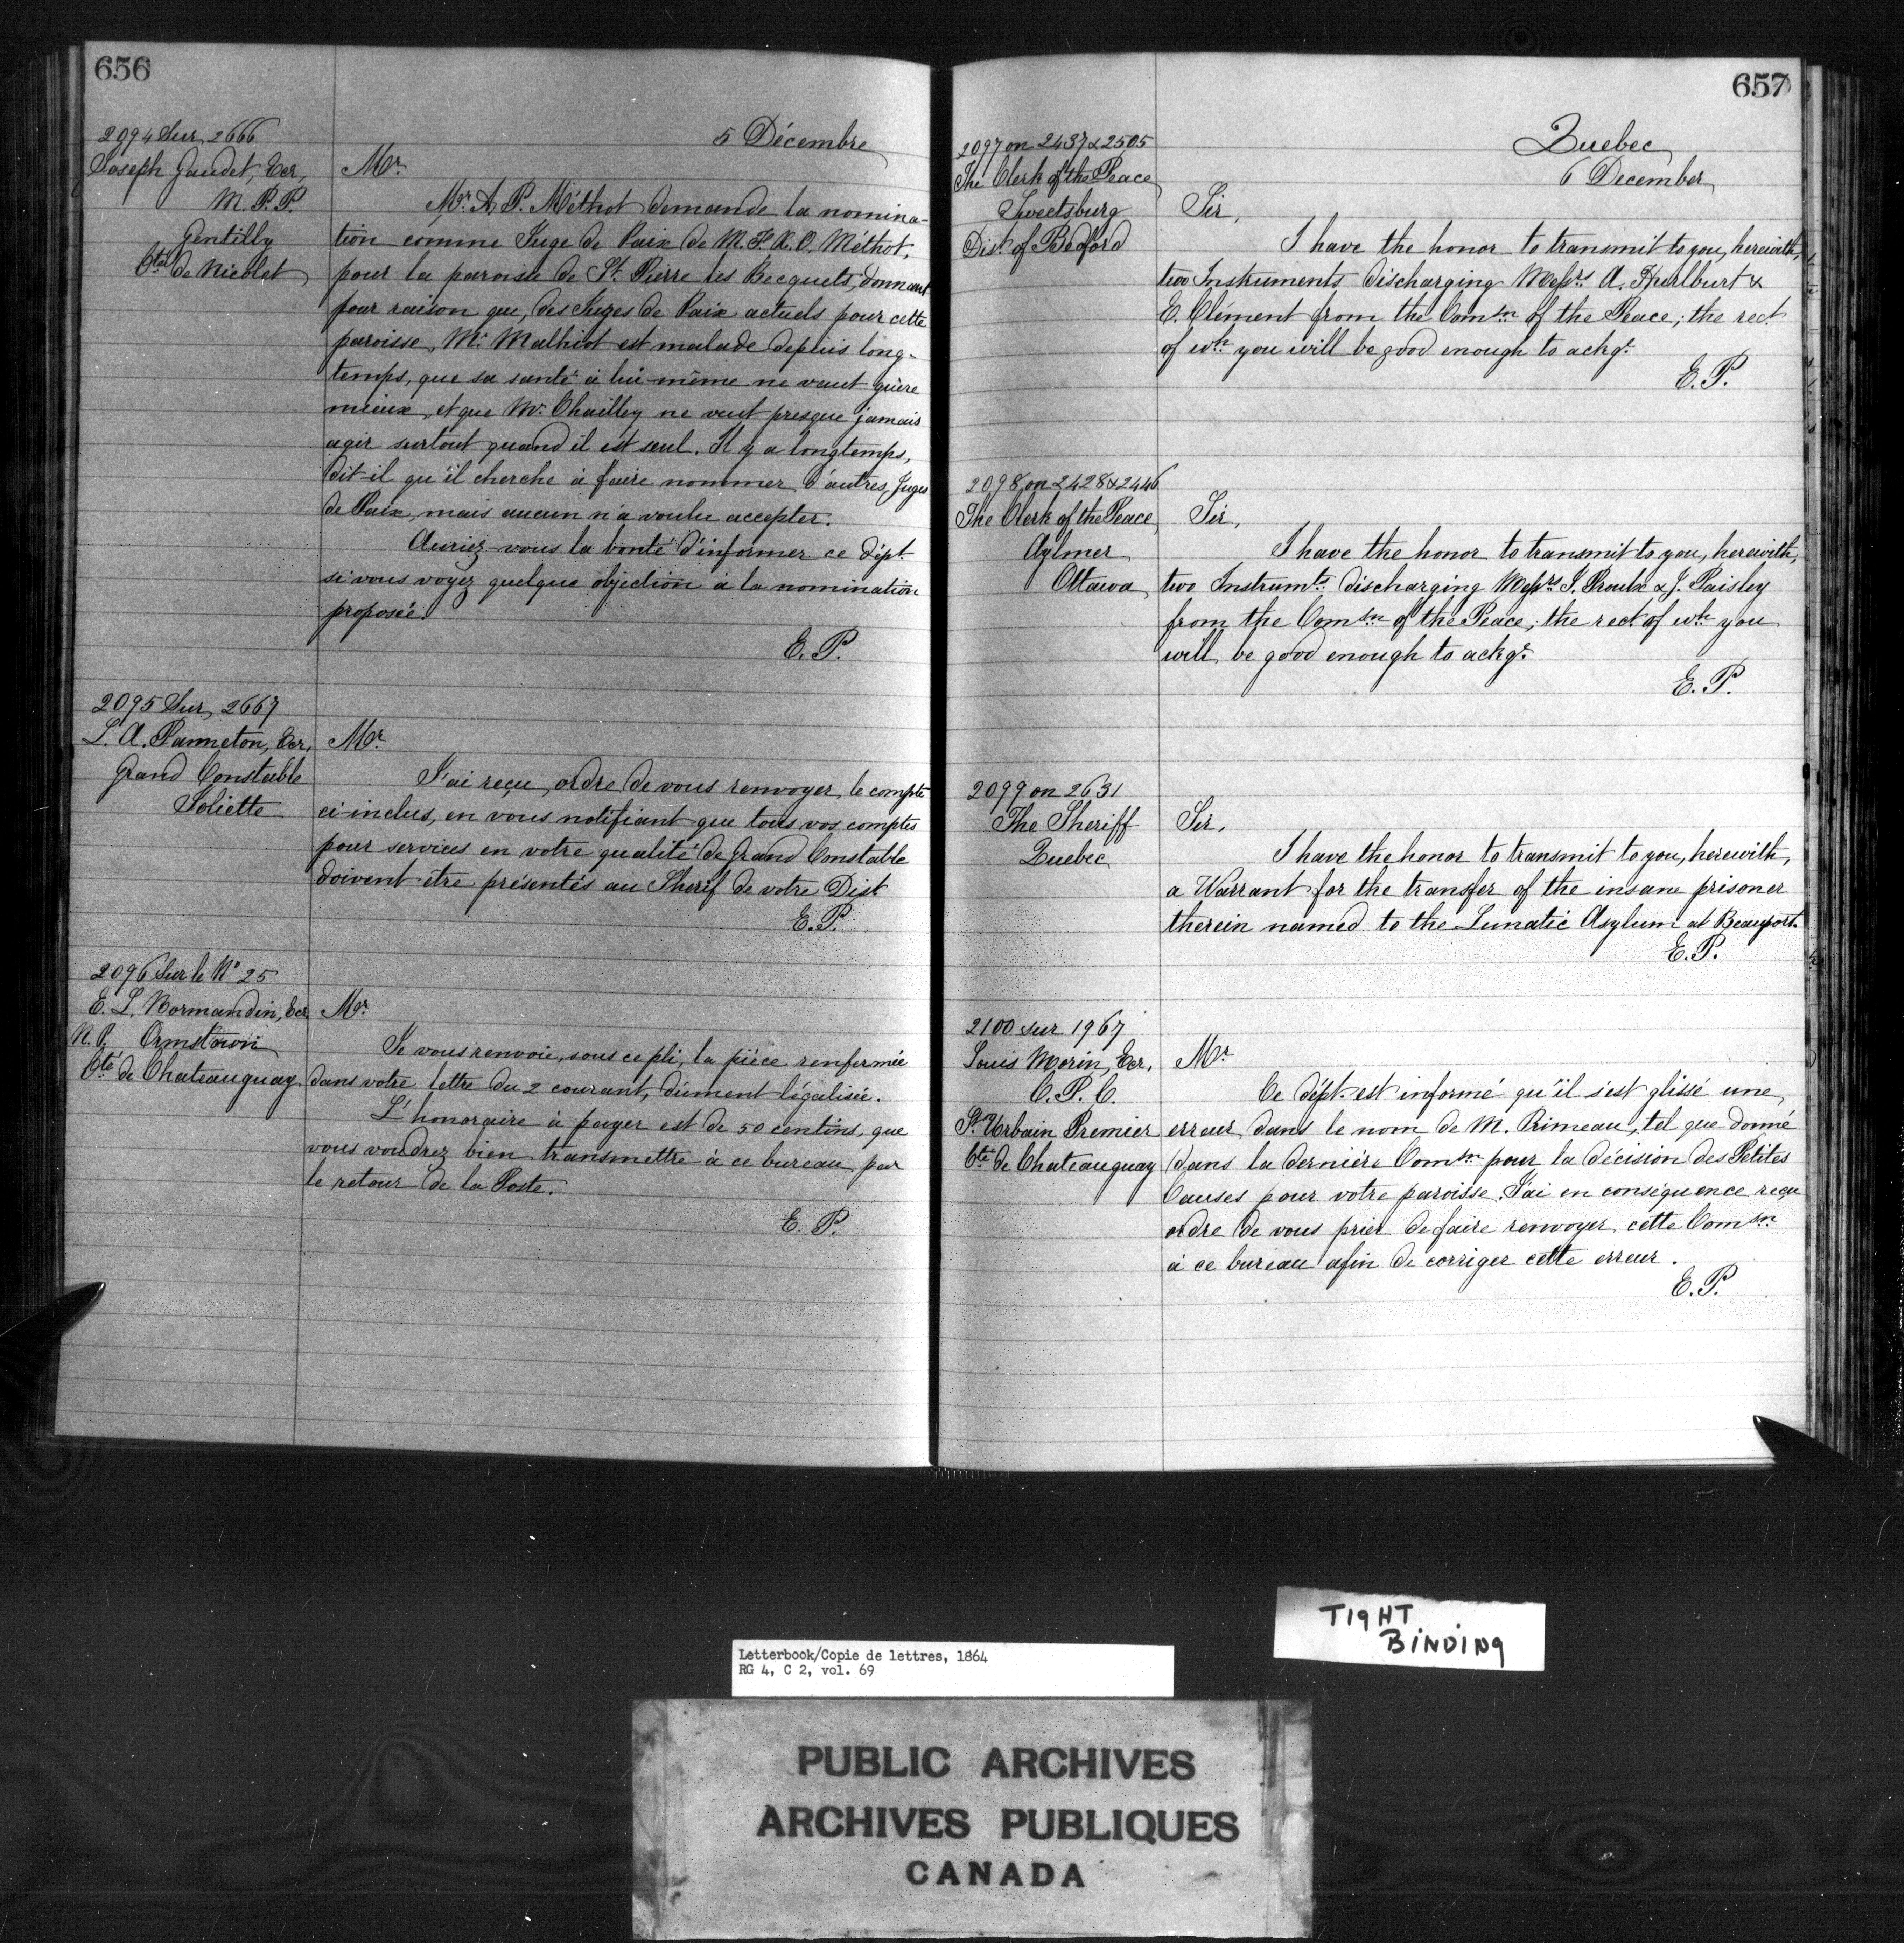 656
5 Décembre
2094 Sur 2666
Joseph Gaudet, Ecr,
M.P.P.
Gentilly
Cté de Nicolet
Mr
Mr A. P. Méthot demande la nomina-
tion comme Juge de Paix de M. F. R. O. Méthot,
pour la paroisse de St. Pierre les Becquets, donnant
pour raison que, des Juges de Paix actuels pour cette
paroisse, Mr. Malhiot est malade depuis long-
temps, que sa santé à lui-même ne vaut guère
mieux, et que Mr. Chailley ne veut presque jamais
agir surtout quand il est seul. Il y a longtemps,
dit-il qu'il cherche à faire nommer d'autres Juges
de Paix, mais aucun n'a voulu accepter.
Auriez-vous la bonté d'informer ce dépt
si vous voyez quelque objection à la nomination
proposée.
E. P.
2095 Sur 2667
L. A. Panneton, Ecr,
Grand Constable
Joliette
Mr
J'ai reçu ordre de vous renvoyer le compte
ci-inclus, en vous notifiant que tous vos comptes
pour services en votre qualité de Grand Constable
doivent être présentés au Sherif de votre Dist
E. P.
2096 Sur le No 25
E. L. Normandin, Ecr
N. P. Ormstown
Cté de Chateauguay
Mr
Je vous renvoie, sous ce pli, la pièce renfermée
dans votre lettre du 2 courant, dûment légalisée.
L'honoraire à payer est de 50 centins, que
vous voudrez bien transmettre à ce bureau par
le retour de la Poste.
E. P.
657
Quebec
6 December
2097 on 2437 & 2505
The Clerk of the Peace
Sweetsburg
Dist. of Bedford
Sir,
I have the honor to transmit to you, herewith,
two Instruments discharging Messrs A. Hurlburt &
E. Clément from the Comsn of the Peace; the rect
of wh you will be good enough to ackge.
E. P.
2098 on 2428 & 2446
The Clerk of the Peace
Aylmer
Ottawa
Sir,
I have the honor to transmit to you, herewith,
two Instrumts discharging Messrs J. Proulx & J. Paisley
from the Comsn of the Peace; the rect of wh you
will be good enough to ackge.
E. P.
2099 on 2631
The Sheriff
Quebec
Sir,
I have the honor to transmit to you, herewith,
a Warrant for the transfer of the insane prisoner
therein named to the Lunatic Asylum at Beauport.
E. P.
2100 sur 1967
Louis Morin, Ecr,
C. P. C.
St. Urbain Premier
Cté de Chateauguay
Mr
Ce dépt. est informé qu'il s'est glissé une
erreur dans le nom de M. Primeau, tel que donné
dans la dernière Comsn pour la décision des Petites
Causes pour votre paroisse. J'ai en conséquence reçu
ordre de vous prier de faire renvoyer cette Comsn
à ce bureau afin de corriger cette erreur.
E. P.
TIGHT
BINDING
Letterbook/Copie de lettres, 1864
RG 4, C 2, vol. 69
PUBLIC ARCHIVES
ARCHIVES PUBLIQUES
CANADA